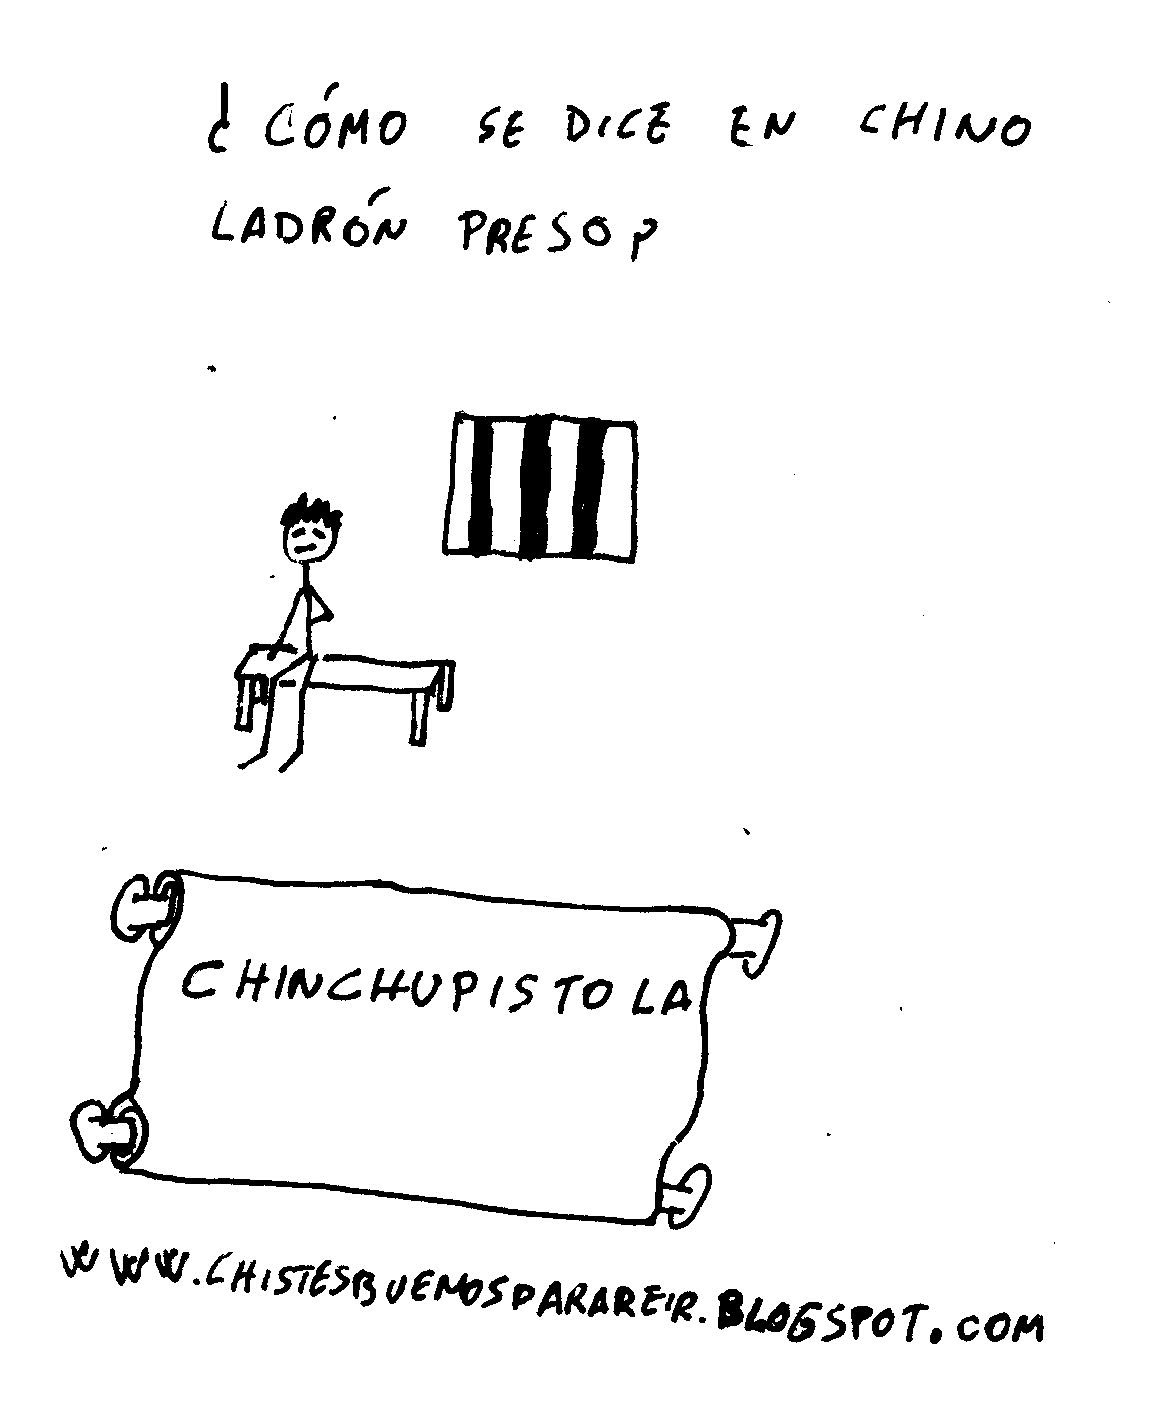 ¿CÓMO SE DICE EN CHINO
LADRÓN PRESO?
CHINCHUPISTOLA
WWW.CHISTESBUENOSPARAREIR.BLOGSPOT.COM